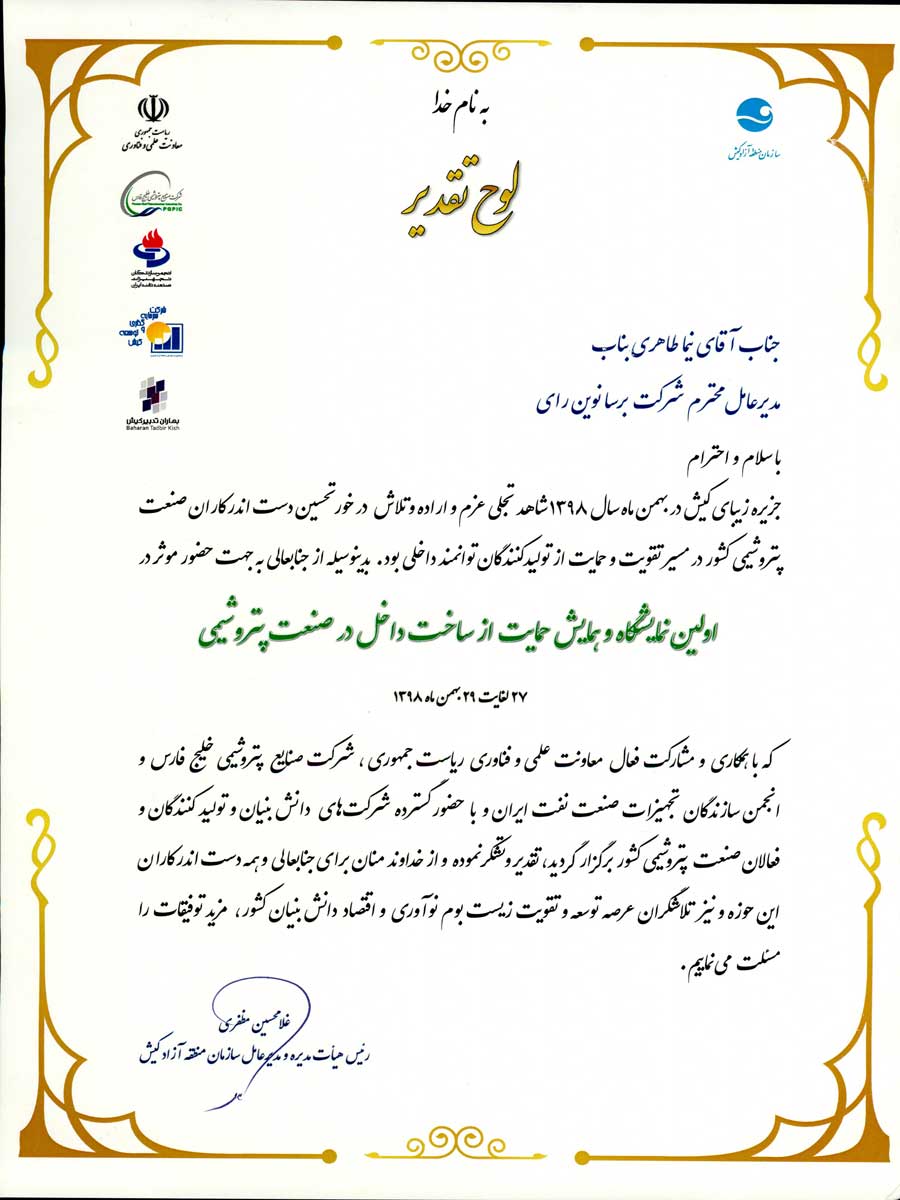 به نام خدا
لوح تقدیر
سازمان منطقه آزاد کیش
ریاست جمهوری
معاونت علمی و فناوری
شرکت صنایع پتروشیمی خلیج فارس
PGPIC
انجمن سازندگان
تجهیزات
صنعت نفت ایران
شرکت
سرمایه
گذاری
و توسعه
کیش
بهاران تدبیر کیش
Baharan Tadbir Kish
جناب آقای نیما طاهری بناب
مدیرعامل محترم شرکت برسا نوین رای
با سلام و احترام
جزیره زیبای کیش در بهمن ماه سال ۱۳۹۸ شاهد تجلی عزم و اراده و تلاش در خور تحسین دست اندرکاران صنعت
پتروشیمی کشور در مسیر تقویت و حمایت از تولیدکنندگان توانمند داخلی بود. بدینوسیله از جنابعالی به جهت حضور موثر در
اولین نمایشگاه و همایش حمایت از ساخت داخل در صنعت پتروشیمی
۲۷ لغایت ۲۹ بهمن ماه ۱۳۹۸
که با همکاری و مشارکت فعال معاونت علمی و فناوری ریاست جمهوری، شرکت صنایع پتروشیمی خلیج فارس و
انجمن سازندگان تجهیزات صنعت نفت ایران و با حضور گسترده شرکت‌های دانش بنیان و تولید کنندگان و
فعالان صنعت پتروشیمی کشور برگزار گردید، تقدیر و تشکر نموده و از خداوند منان برای جنابعالی و همه دست اندرکاران
این حوزه و نیز تلاشگران عرصه توسعه و تقویت زیست بوم نوآوری و اقتصاد دانش بنیان کشور، مزید توفیقات را
مسئلت می‌نماییم.
غلامحسین مظفری
رئیس هیأت مدیره و مدیرعامل سازمان منطقه آزاد کیش